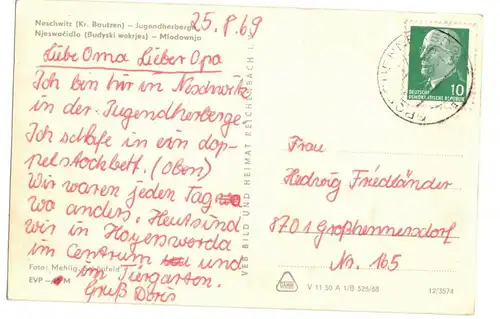 Neschwitz (Kr. Bautzen) – Jugendherberge
Njeswačidło (Budyski wokrjes) – Młodownja
25.8.69
Liebe Oma Lieber Opa
Ich bin hir in Neschwitz
in der Jugendherberge.
Ich schlafe in ein dop-
pelstockbett. (Oben)
Wir waren jeden Tag
wo anders. Heut sind
wir in Hoyerswerda
im Centrum und
im Tiergarten.
Gruß Doris
Foto: Mehlig,
EVP M
VEB BILD UND HEIMAT REICHENBACH I. V.
DEUTSCHE
DEMOKRATISCHE REPUBLIK
10
Frau
Hedwig Friedländer
8701 Großhennersdorf
Nr. 165
V 11 50 A 1/B 525/68
12/3574